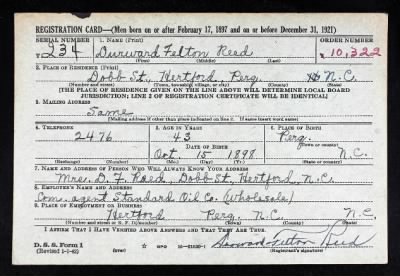 REGISTRATION CARD—(Men born on or after February 17, 1897 and on or before December 31, 1921)
SERIAL NUMBER 1. NAME (Print) ORDER NUMBER
T 234 Durward Felton Reed 10,322
(First) (Middle) (Last)
2. PLACE OF RESIDENCE (Print)
Dobb St., Hertford, Perq. N.C.
(Number and street) (Town, township, village, or city) (County) (State)
[THE PLACE OF RESIDENCE GIVEN ON THE LINE ABOVE WILL DETERMINE LOCAL BOARD
JURISDICTION; LINE 2 OF REGISTRATION CERTIFICATE WILL BE IDENTICAL]
3. MAILING ADDRESS
Same
[Mailing address if other than place indicated on line 2. If same insert word same]
4. TELEPHONE 5. AGE IN YEARS 6. PLACE OF BIRTH
2476 43 Perq.
DATE OF BIRTH (Town or county)
Oct. 15 1898 N.C.
(Exchange) (Number) (Mo.) (Day) (Yr.) (State or country)
7. NAME AND ADDRESS OF PERSON WHO WILL ALWAYS KNOW YOUR ADDRESS
Mrs. D. F. Reed, Dobb St., Hertford, N.C.
8. EMPLOYER'S NAME AND ADDRESS
Com. agent Standard Oil Co. (wholesale)
9. PLACE OF EMPLOYMENT OR BUSINESS
Hertford Perq. N.C. N.C.
(Number and street or R. F. D. number) (Town) (County) (State)
I AFFIRM THAT I HAVE VERIFIED ABOVE ANSWERS AND THAT THEY ARE TRUE.
D. S. S. Form 1 Durward Felton Reed
(Revised 1-1-42) (over) GPO (Registrant's signature)